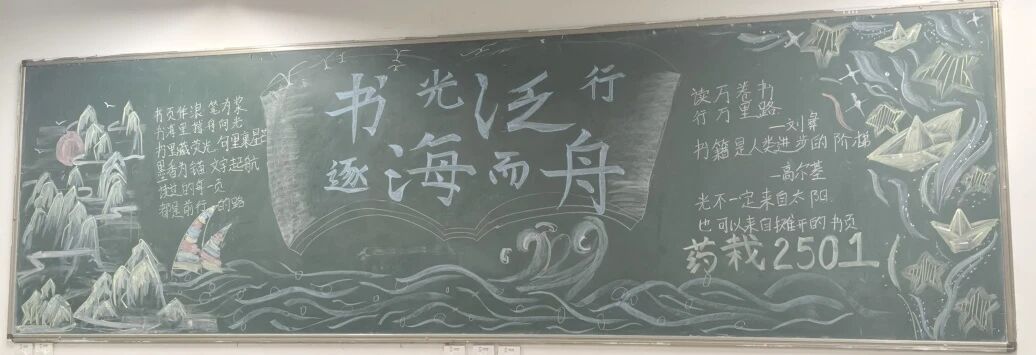 书页作浪 笔为桨
书里藏荧光 句里裹星
墨香为锚 文字起航
读过的每一页
都是前行 的路
书光泛行
逐海而舟
读万卷书
行万里路
—刘彝
书籍是人类进步的阶梯
—高尔基
光不一定来自太阳
也可以来自摊开的书页
药栽2501